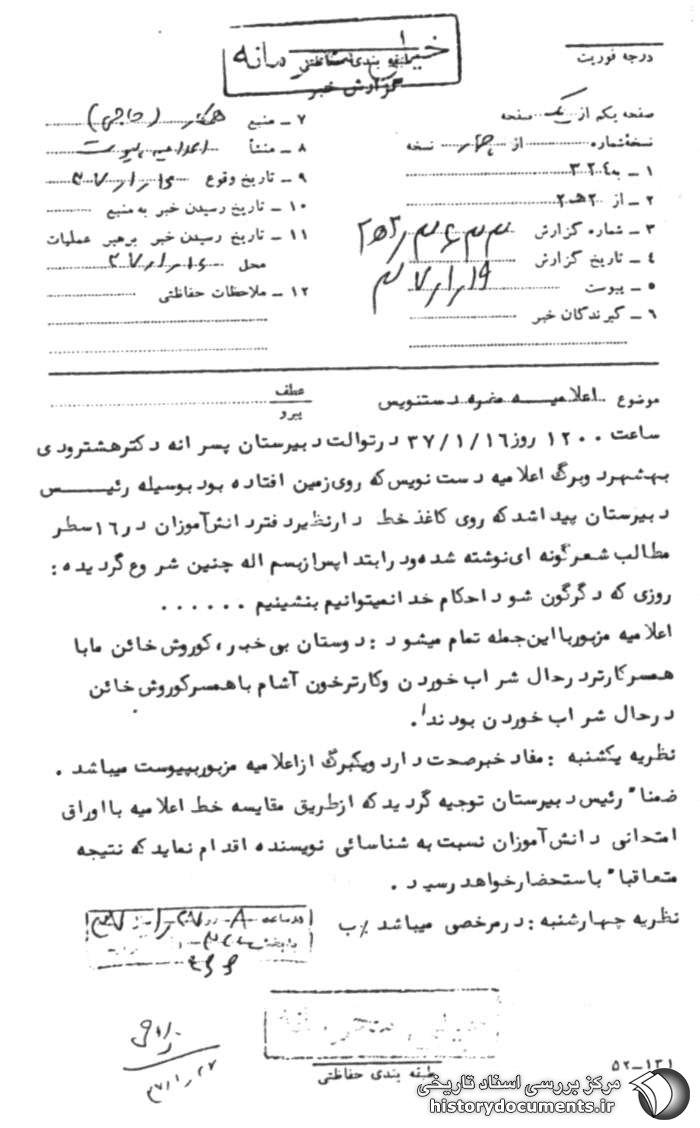 خیلی محرمانه
طبقه بندی حفاظتی
گزارش خبر
درجه فوریت
صفحه یکم از یک صفحه
نسخه شماره از چهار نسخه
۱ ـ به ۳۲٤
۲ ـ از ۲ﻫ۲
۳ ـ شماره گزارش
٤ ـ تاریخ گزارش ۳۷/۱/۱۹
۵ ـ پیوست
۶ ـ گیرندگان خبر
۷ ـ منبع همکار (حاجی)
۸ ـ منشأ اعلامیه پیوست
۹ ـ تاریخ وقوع ۳۷/۱/۱۶
۱۰ ـ تاریخ رسیدن خبر به منبع
۱۱ ـ تاریخ رسیدن خبر برهبر عملیات
محل ۳۷/۱/۱۶
۱۲ ـ ملاحظات حفاظتی
موضوع اعلامیه مضره دستنویس
عطف
پیرو
ساعت ۱۲۰۰ روز ۳۷/۱/۱۶ در توالت دبیرستان پسرانه دکتر هشترودی
بهشهر دو برگ اعلامیه دست نویس که روی زمین افتاده بود بوسیله رئیس
دبیرستان پیدا شد که روی کاغذ خط دار نظیر دفتر دانش آموزان در ۱۶ سطر
مطالب شعر گونه ای نوشته شده و در ابتدا پس از بسم اله چنین شروع گردیده :
روزی که دگرگون شود احکام خدا نمیتوانیم بنشینیم . . . . . .
اعلامیه مزبور با این جمله تمام میشود : دوستان بی خبر ، کوروش خائن ما با
همسر کارتر در حال شراب خوردن و کارتر خون آشام با همسر کوروش خائن
در حال شراب خوردن بودند .
نظریه یکشنبه : مفاد خبر صحت دارد و یکبرگ از اعلامیه مزبور بپیوست میباشد .
ضمناً رئیس دبیرستان توجیه گردید که از طریق مقایسه خط اعلامیه با اوراق
امتحانی دانش آموزان نسبت به شناسائی نویسنده اقدام نماید که نتیجه
متعاقباً باستحضار خواهد رسید .
نظریه چهارشنبه : در مرخصی میباشد /ب
طبقه بندی حفاظتی
۵۲-۱۳۱
مرکز بررسی اسناد تاریخی
historydocuments.ir